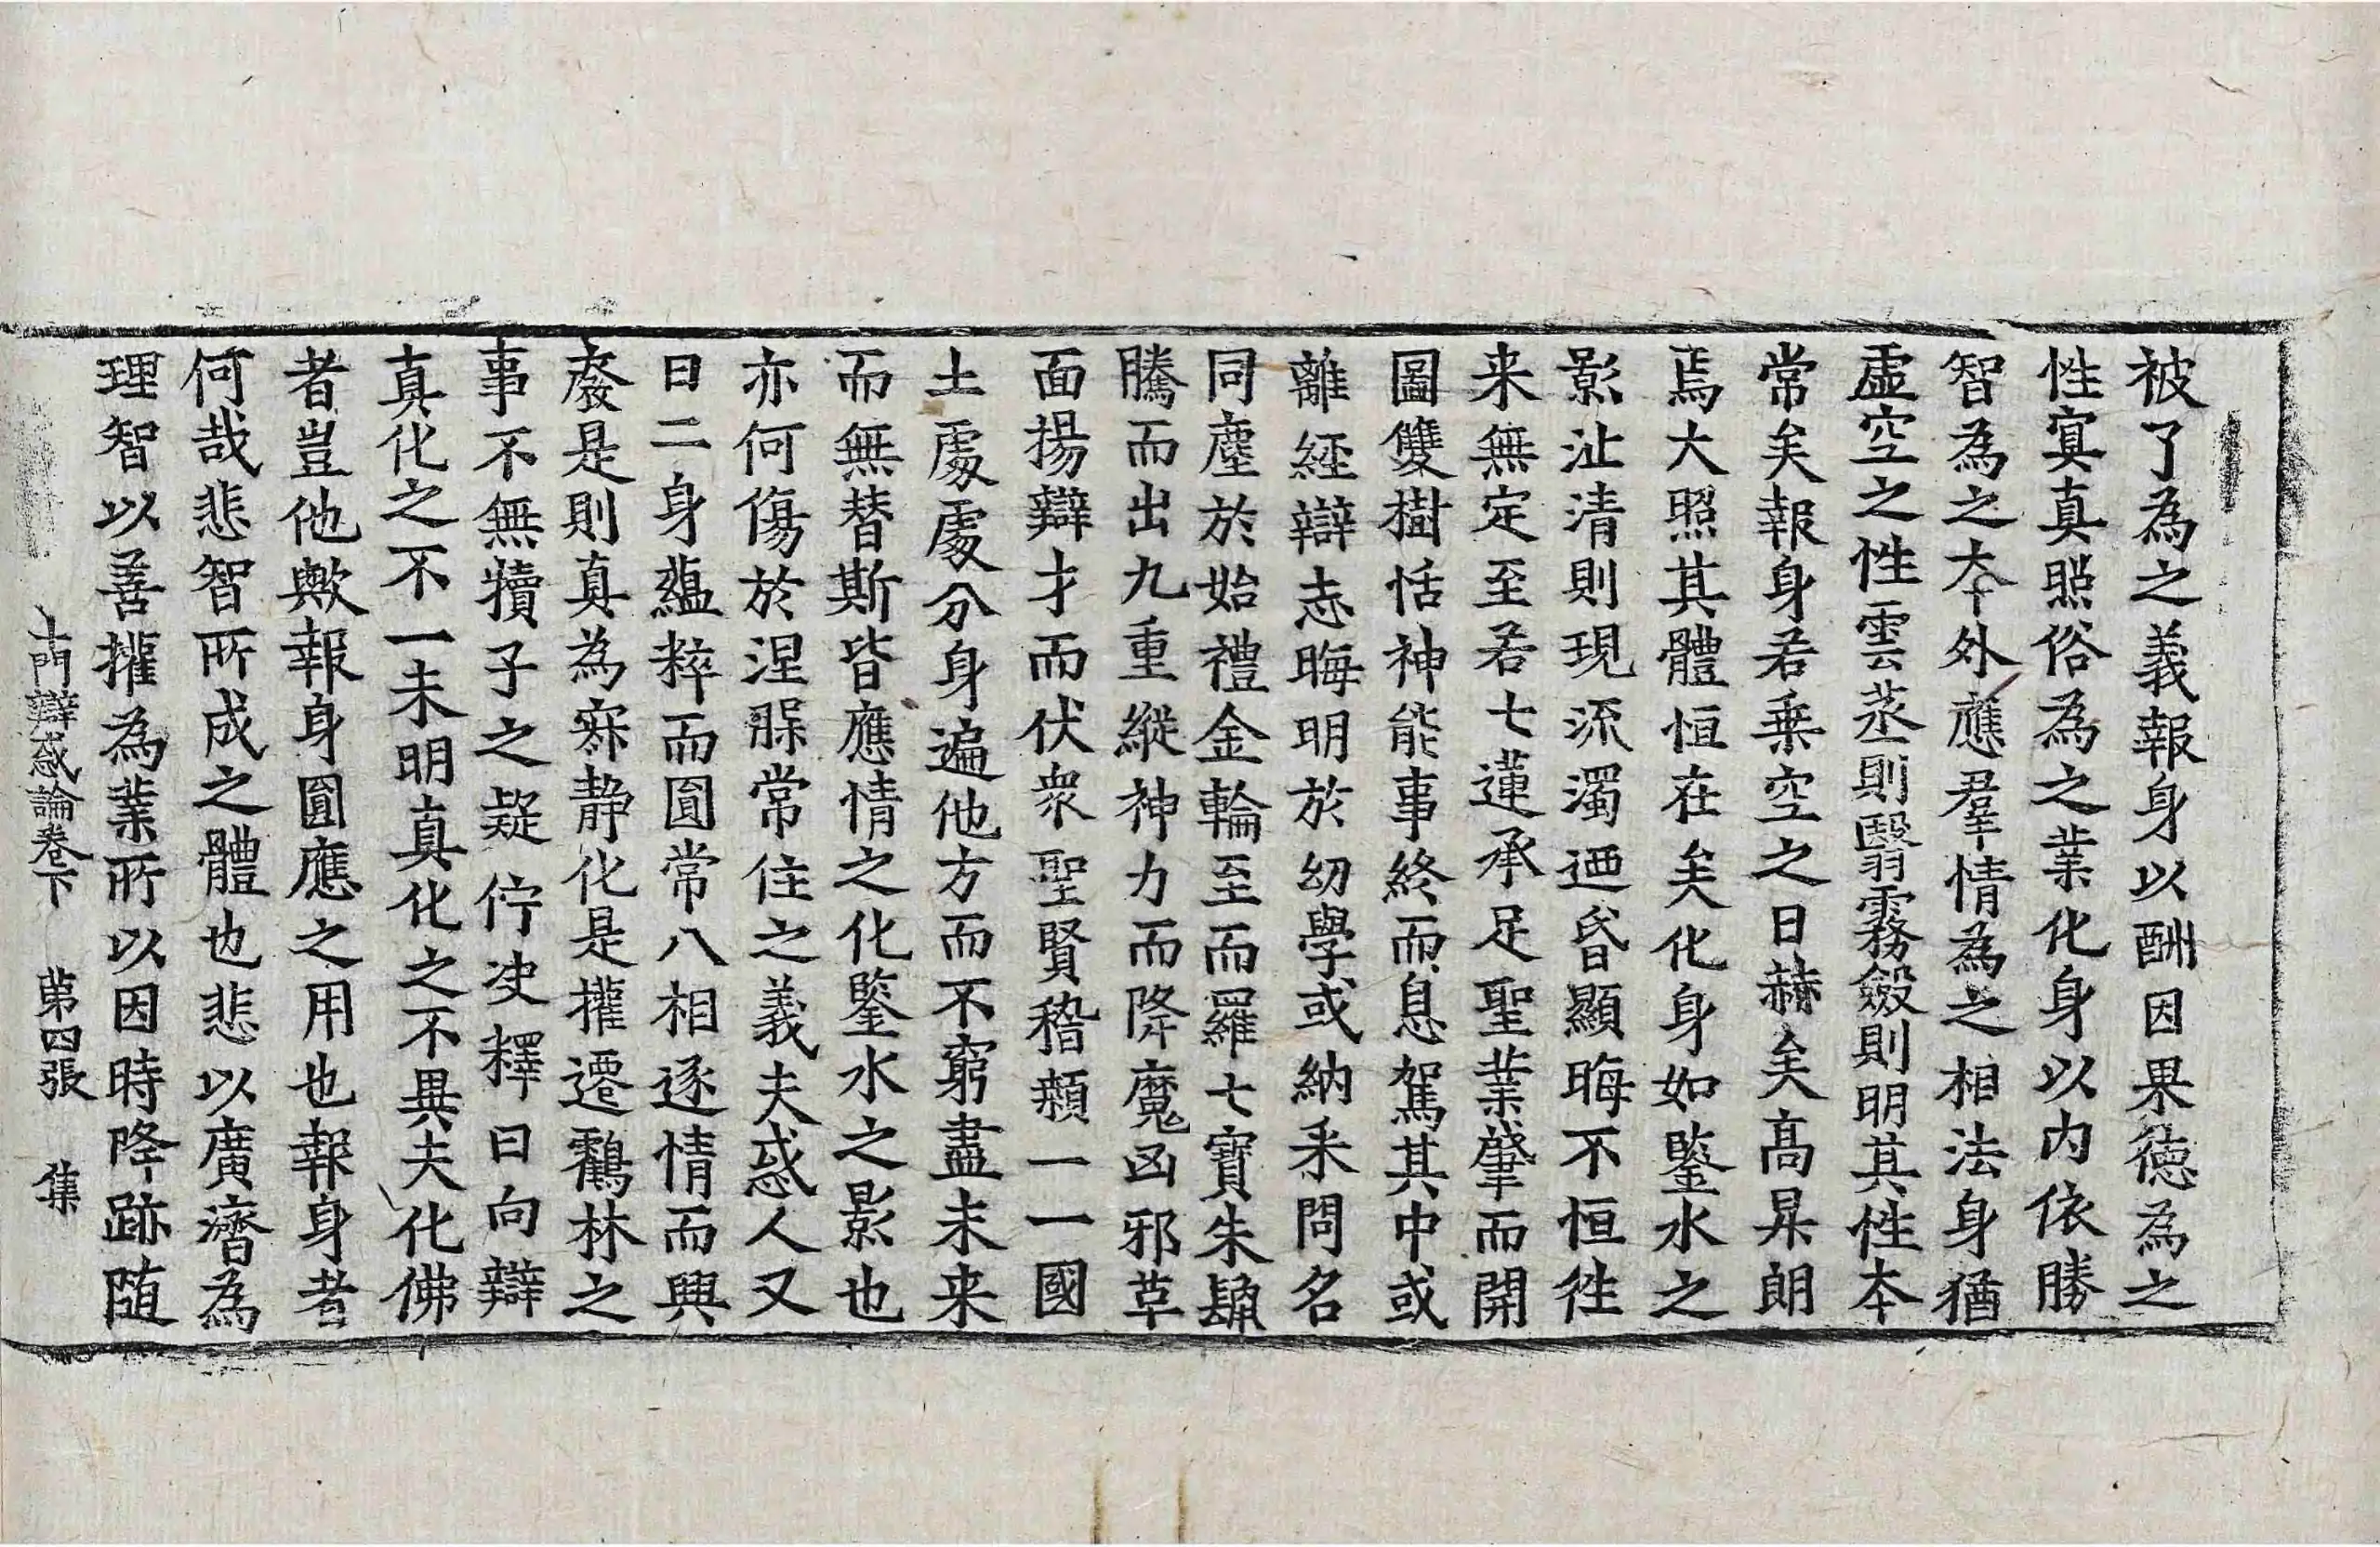 被了為之義報身以酬因果德為之
性寞真照俗為之業化身以内依勝
智為之夲外應羣情為之相法身猶
虛空之性雲蒸則翳霧斂則明其性夲
常矣報身若乗空之日赫矣高昇朗
焉大照其體恒在矣化身如鑒水之
影沚清則現流濁迺昏顯晦不恒徃
来無定至若七蓮承足聖業肇而開
圖雙樹恬神能事終而息駕其中或
離經辯志晦明於幼學或納采問名
同塵於始禮金輪至而羅七寶朱鬛
騰而出九重縱神力而降魔凶邪草
面揚辯才而伏衆聖賢稽顙一一國
土處處分身遍他方而不窮盡未来
而無替斯皆應情之化鑒水之影也
亦何傷於涅槃常住之義夫惑人又
日二身蘊粹而圎常八相逐情而興
癈是則真為寂静化是權遷鸖林之
事不無犢子之疑佇决釋曰向辯
真化之不一未明真化之不異夫化佛
者豈他歟報身圎應之用也報身者
何哉悲智所成之體也悲以廣濟為
理智以善權為業所以因時降跡随
十門辯惑論卷下　第四張　集